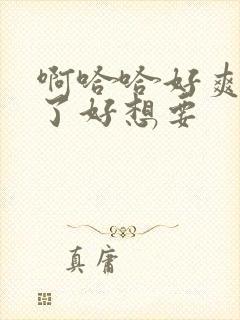 啊哈哈好爽
了好想要
真庸